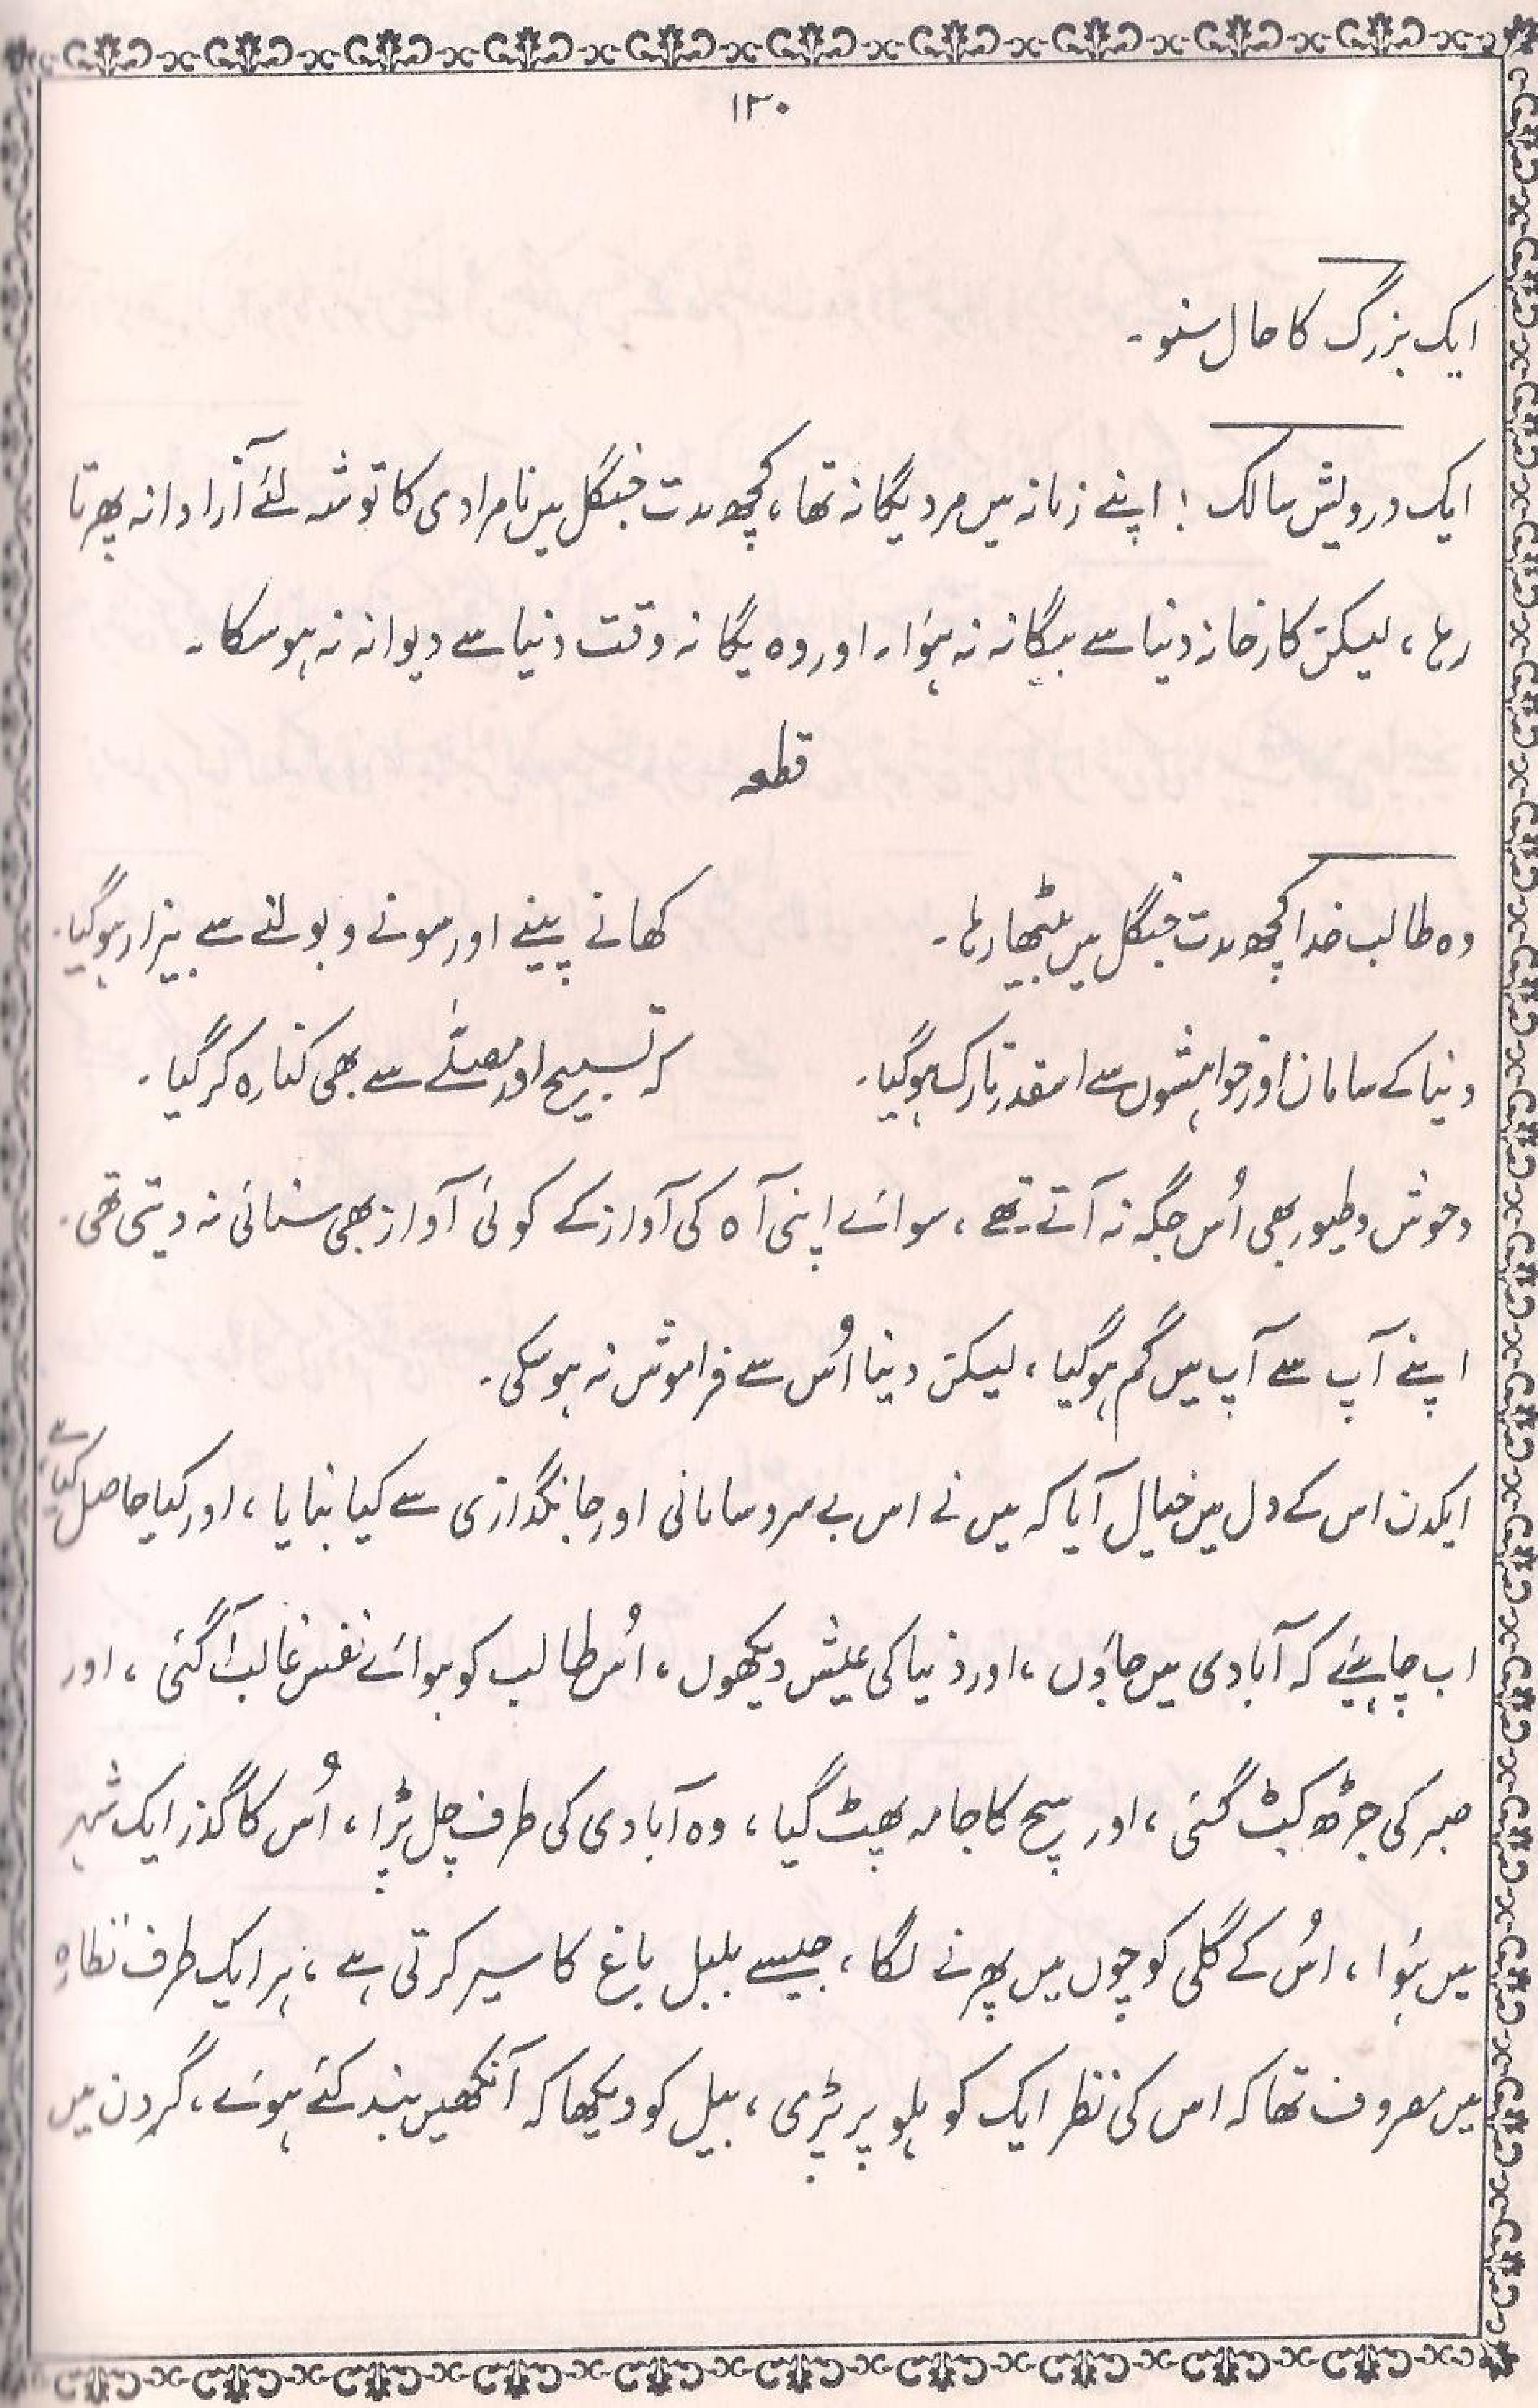 ۱۳۰
ایک بزرگ کا حال سنو۔
ایک درویش سالک ! اپنے زمانہ میں مرد یگانہ تھا، کچھ مدت جنگل میں نامرادی کا توشہ لئے آزادانہ پھرتا
رہا، لیکن کارخانہ دنیا سے بیگانہ نہ ہؤا۔ اور وہ یگانہ وقت دنیا سے دیوانہ نہ ہو سکا۔
قطعہ
وہ طالب خدا کچھ مدت جنگل میں بیٹھا رہا۔ کھانے پینے اور سونے و بولنے سے بیزار ہوگیا۔
دنیا کے سامان اور خواہشوں سے اسقدر تارک ہوگیا۔ کہ تسبیح اور مصلّے سے بھی کنارہ کر گیا۔
وحوش وطیور بھی اُس جگہ نہ آتے تھے، سوائے اپنی آہ کی آواز کے کوئی آواز بھی سنائی نہ دیتی تھی۔
اپنے آپ سے آپ میں گم ہوگیا، لیکن دنیا اُس سے فراموش نہ ہوسکی۔
ایکدن اس کے دل میں خیال آیا کہ میں نے اس بے سروسامانی اور جانگدازی سے کیا بنایا، اور کیا حاصل کیا ہے
اب چاہیئے کہ آبادی میں جاؤں، اور دُنیا کی عیش دیکھوں، اُس طالب کو ہوائے نفس غالب آگئی، اور
صبر کی جڑھ کٹ گئی، اور سچ کا جامہ پھٹ گیا، وہ آبادی کی طرف چل پڑا، اُس کا گذر ایک شہر
میں ہؤا، اُس کے گلی کوچوں میں پھرنے لگا، جیسے بلبل باغ کا سیر کرتی ہے، ہر ایک طرف نظارہ
میں مصروف تھا کہ اس کی نظر ایک کوہلو پر پڑی، بیل کو دیکھا کہ آنکھیں بند کئے ہوئے، گردن میں